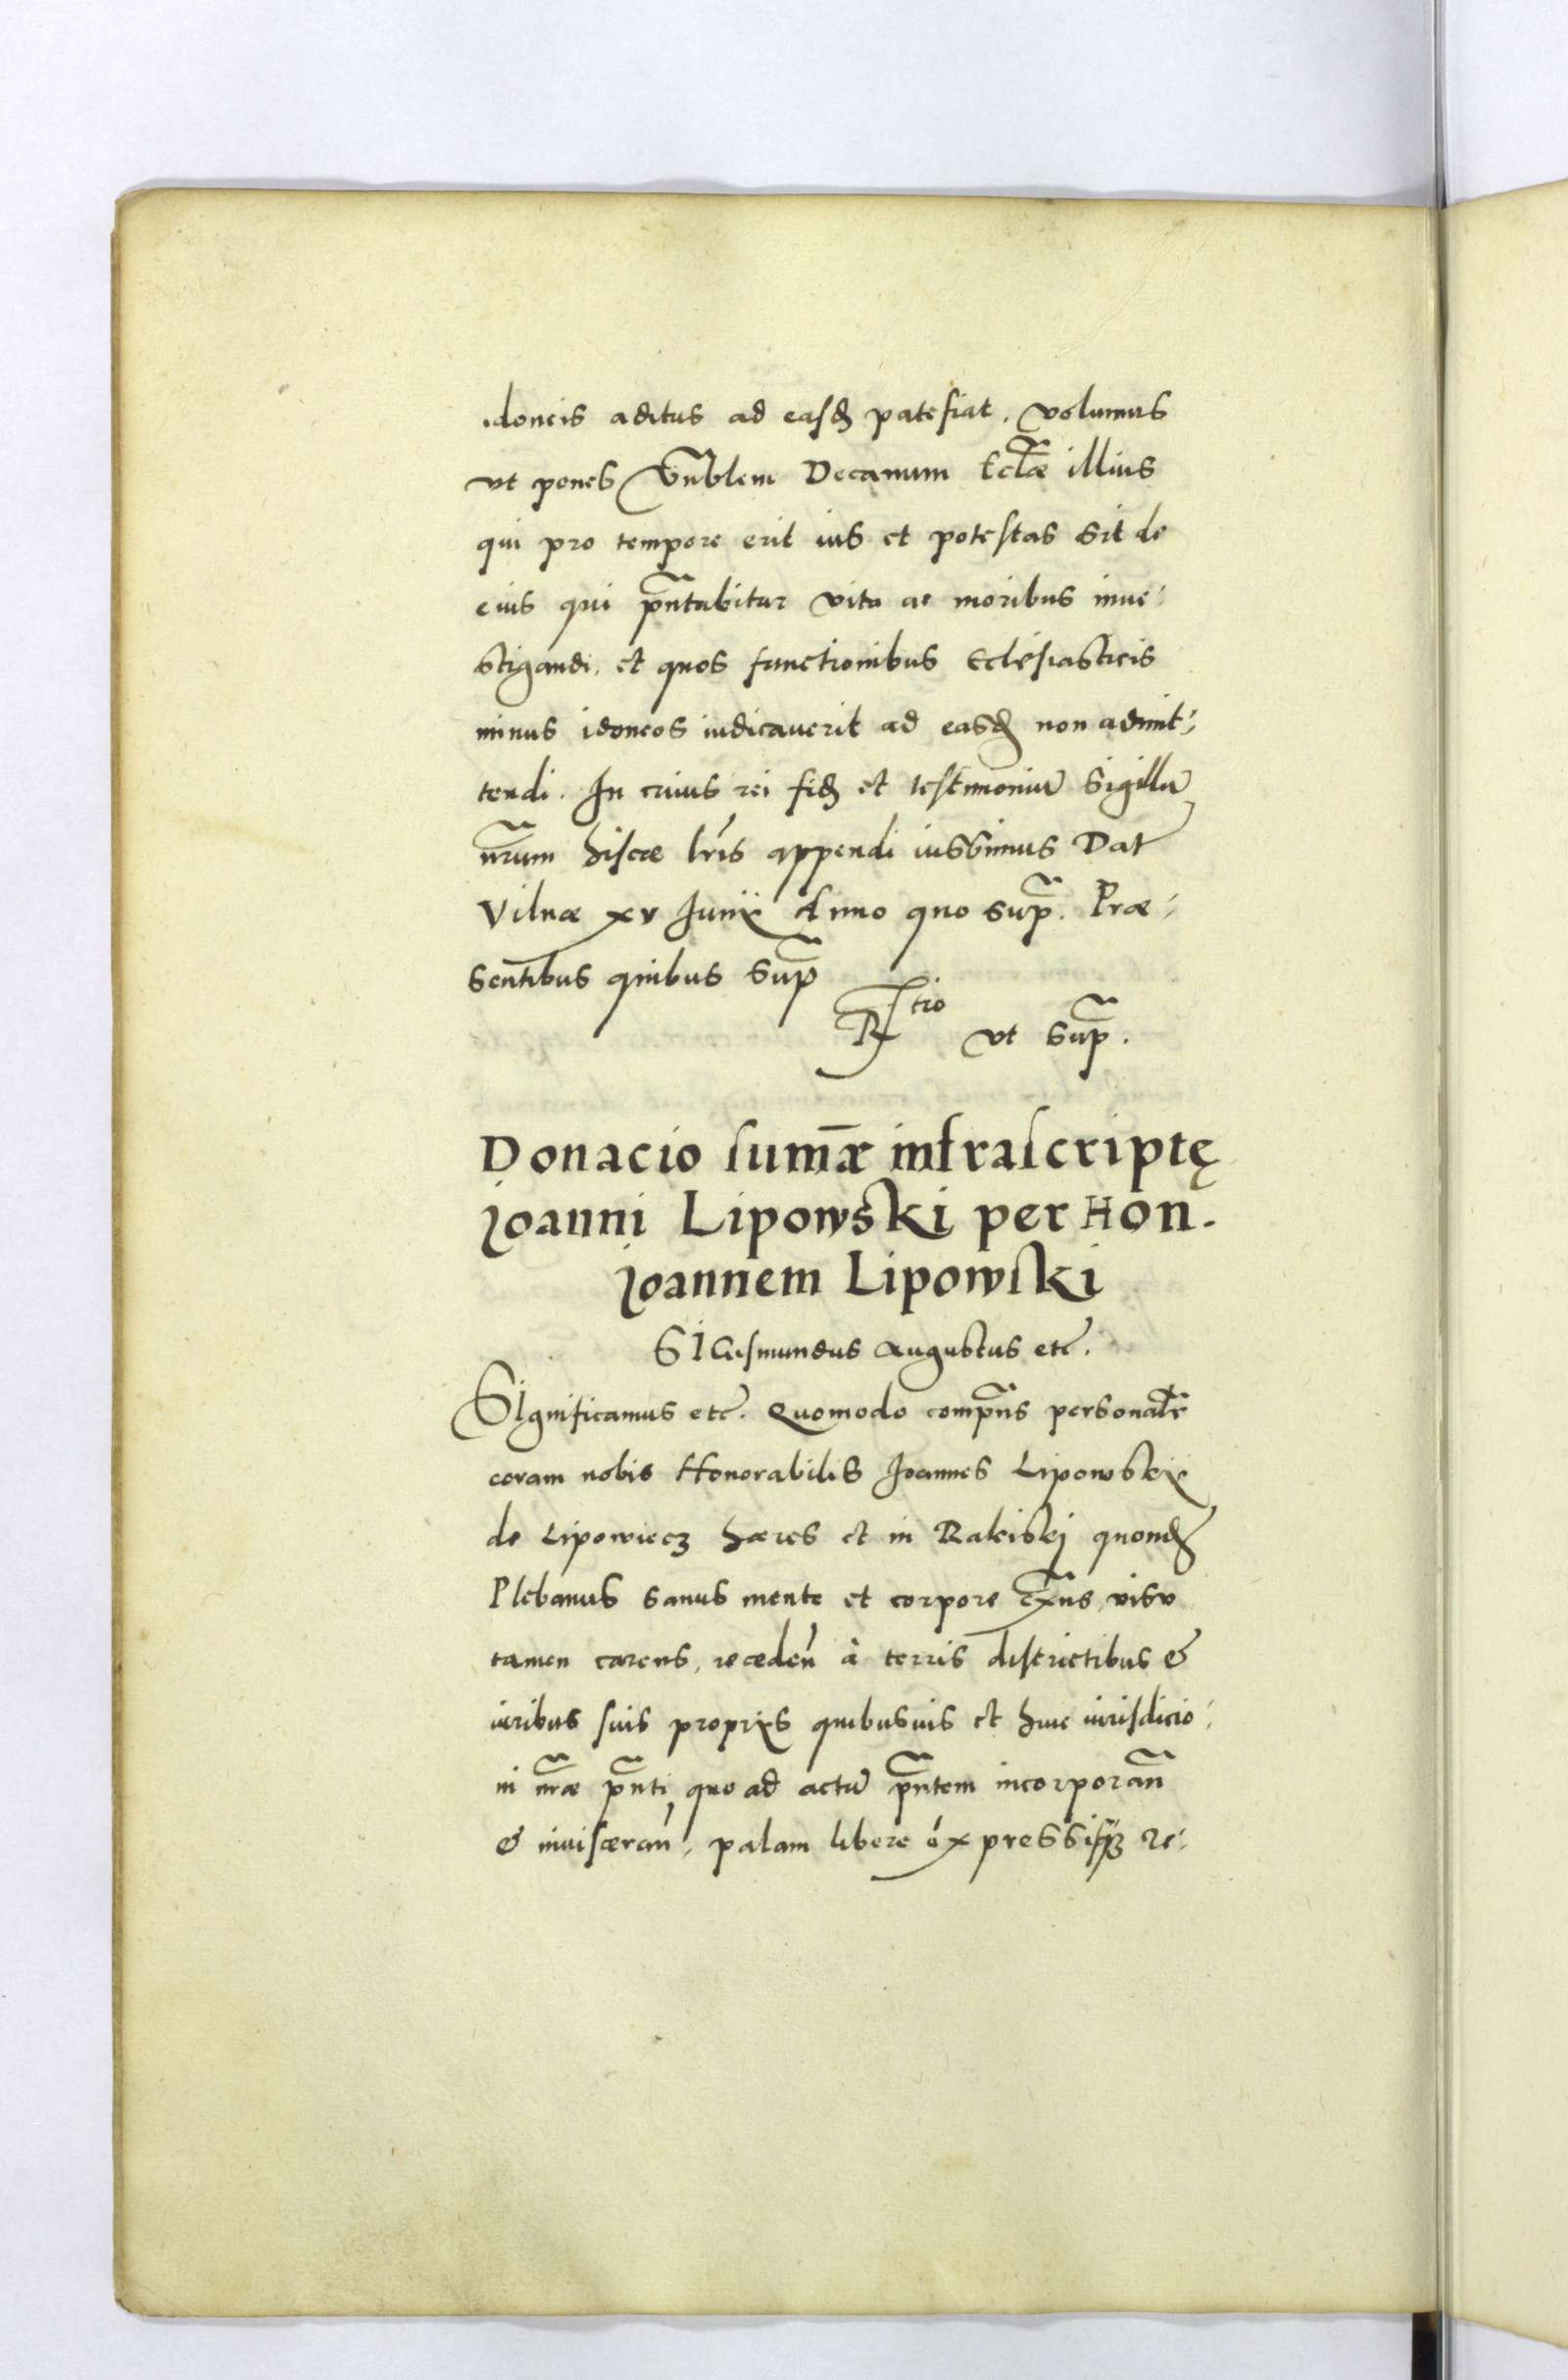 idoneis aditus ad easd patefiat. volumus
ut penes Vnblem Decanum Eclæ illius
qui pro tempore erit ius et potestas sit de
eius qui pñtabitur vita ac moribus inue-
stigandi, et quos functionibus Eclesiasticis
minus idoneos iudicauerit ad easd non admit-
tendi. In cuius rei fid et testimoniũ Sigillũ
nr̃um hisce lris appendi iussimus Dat
Vilnæ xv Iunij Anno quo sup̃. Præ-
sentibus quibus sup̃
Rtio ut sup̃.
Donacio sum̃æ infrascriptę
Joanni Lipowski per Hon.
Joannem Lipowski
SIGismundus Augustus etc.
SIgnificamus etc. Quomodo comp̃ns personalr
coram nobis Honorabilis Joannes Lipowskij
de Lipowiecz hæres et in Rakiskj quond
Plebanus sanus mente et corpore ex̃ns, visu
tamen carens, recedeñ à terris districtibus &
iuribus suis proprijs quibusuis et huic iurisdicio-
ni nr̃æ p̃nti, quo ad actũ p̃ntem incorporañ
& inuisceran, palam libere expressisqз re-